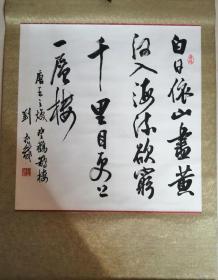 白日依山盡黄
河入海流欲窮
千里目更上
一層樓
唐王之渙登鸛鵲樓
劉